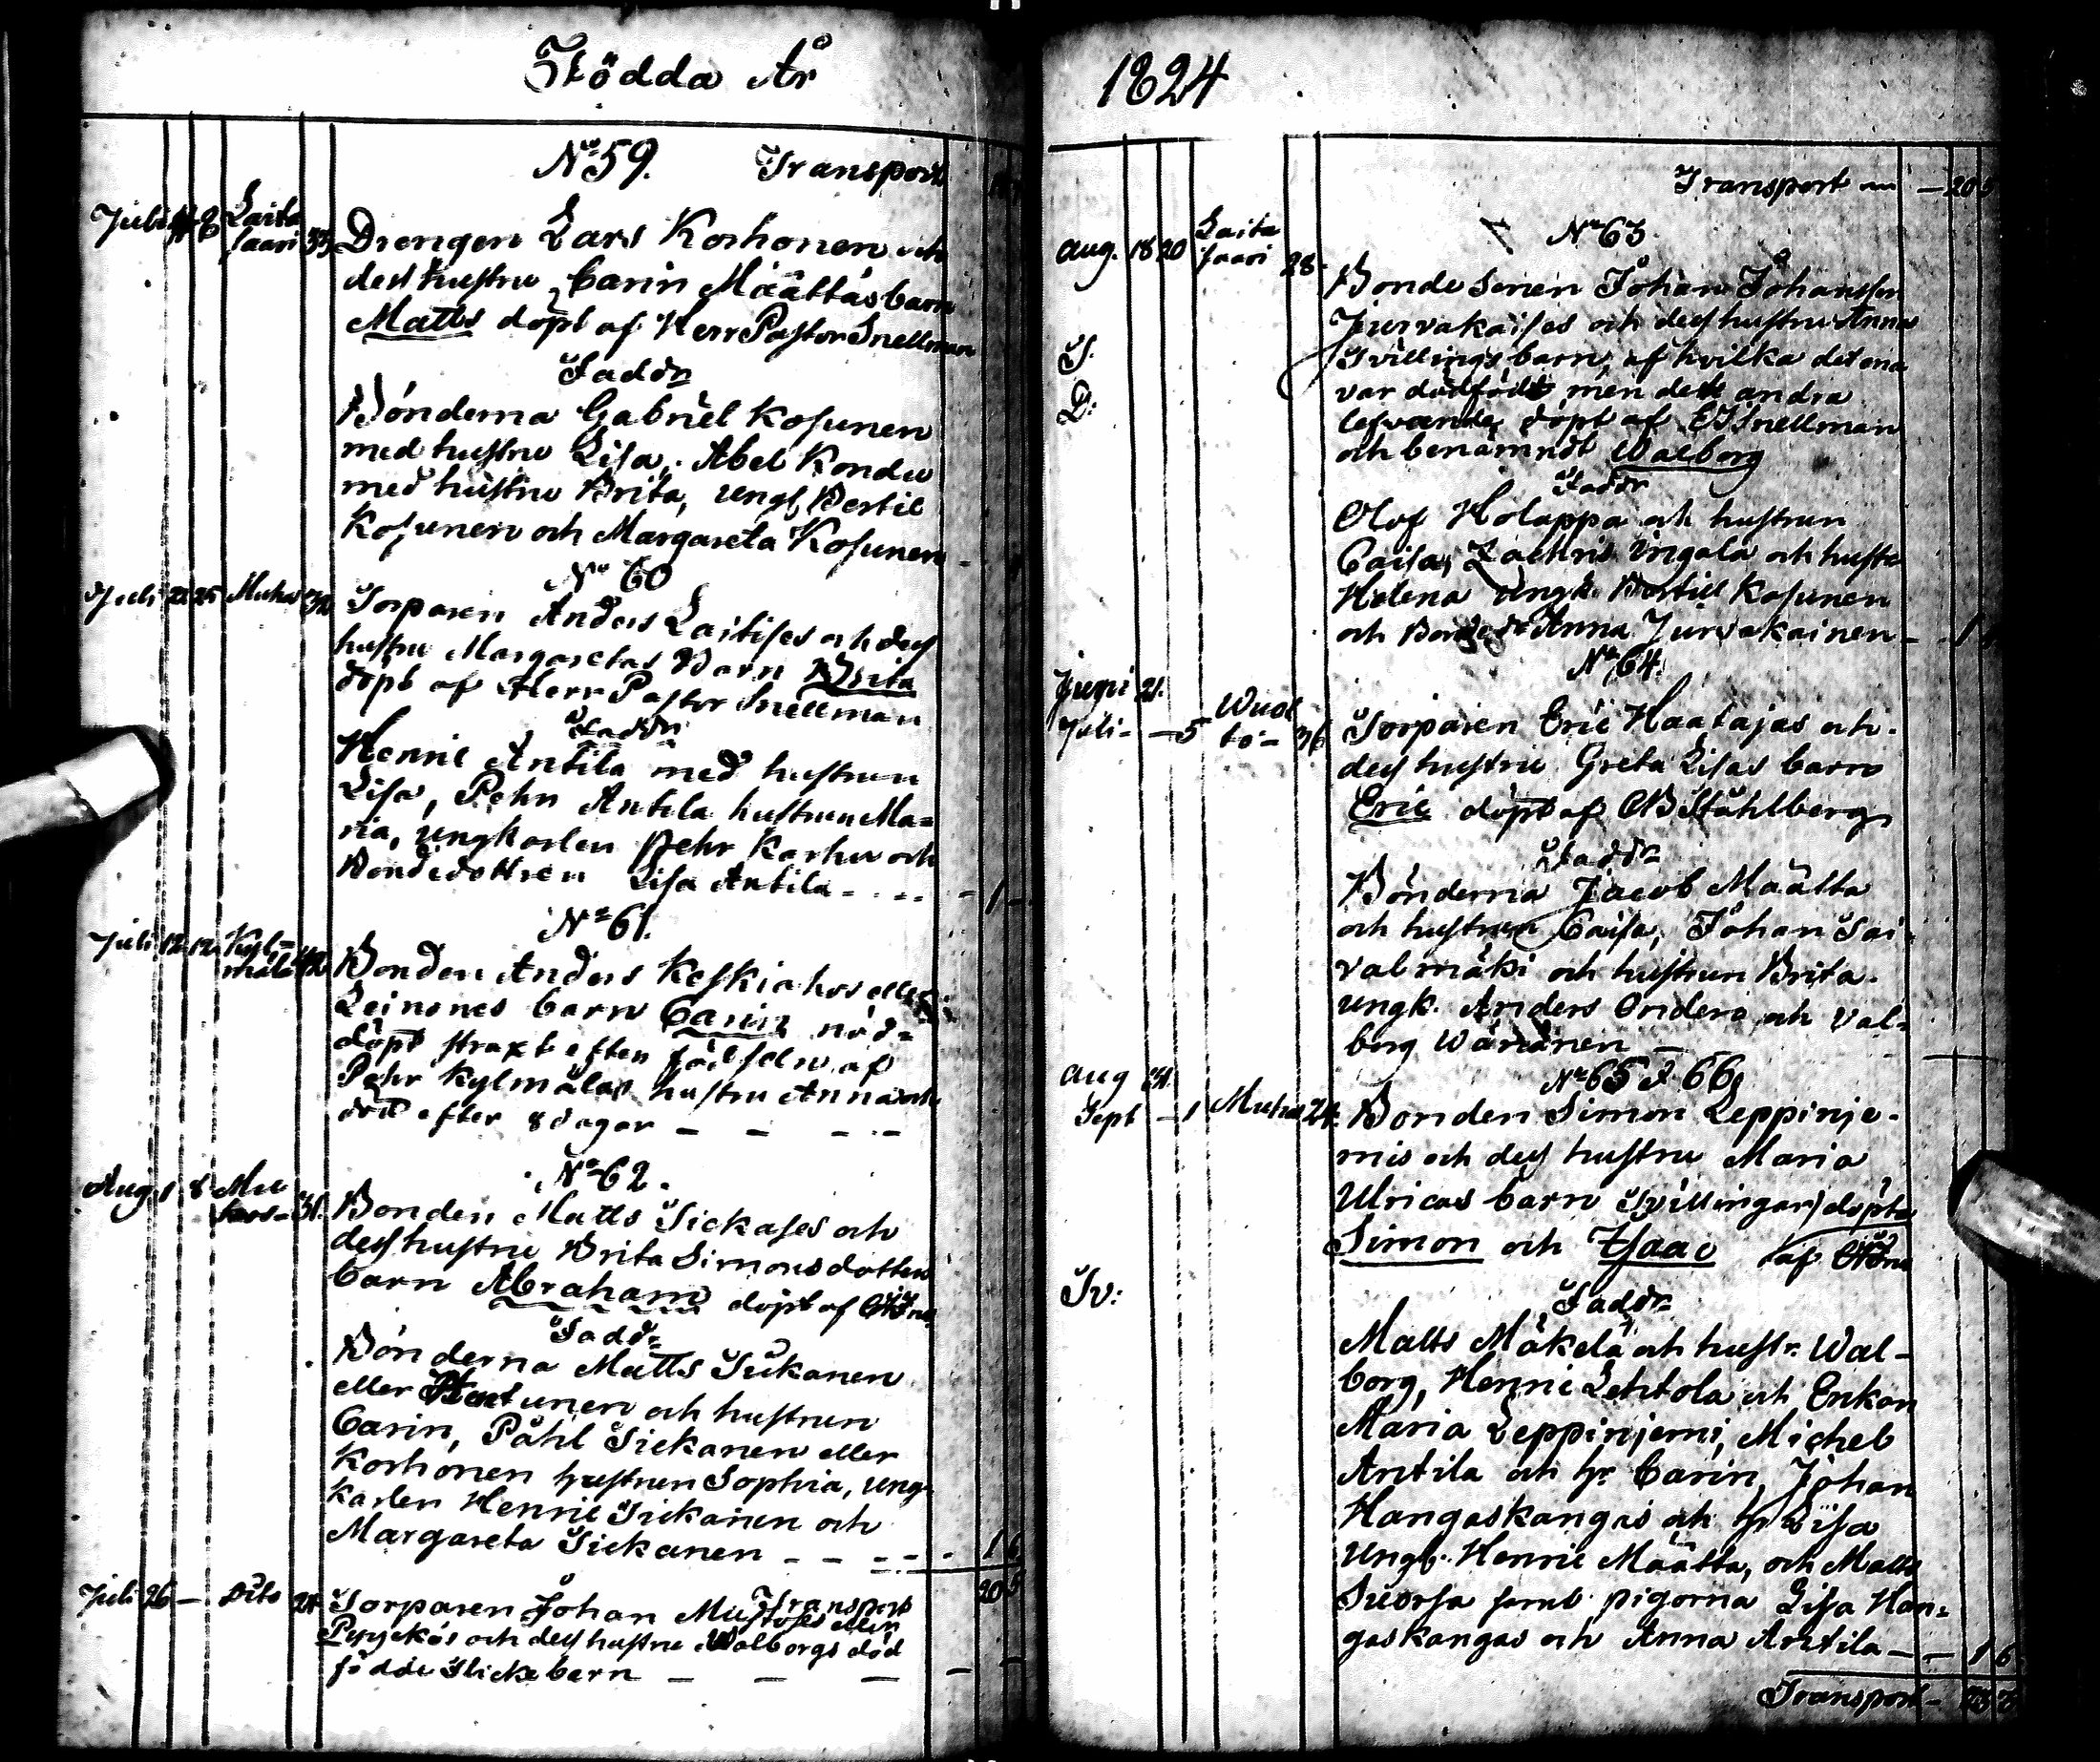 Födda År
No 59. Transport
Juli 8 Laita
saari 33 Drengen Lars Korhonen och
dess hustru Carin Määttäs barn
Matts döpt af Herr Pastor Snellman
Faddr
Bönderna Gabriel Kosunen
med hustru Lisa, Abel Kondu
med hustru Brita, ungk. Bertil
Kosunen och Margareta Kosunen
No 60
Juli 22 25 Muhos Torparen Anders Laitises och dess
hustru Margaretas Barn Brita
döpt af Herr Pastor Snellman
Faddr
Henric Antila med hustrun
Lisa, Pehr Antila hustrun Ma=
ria, ungkarlen Pehr Karhu och
Bondedottren Lisa Antila - 1 -
No 61.
Juli 12 12 Kyl=
mälä 42 Bonden Anders Keskiaho eller
Leinones barn Carin nöd=
döpt straxt efter födseln af
Pehr Kylmäläs hustru Anna och
död efter 8 dagar - - - -
No 62.
Aug. 1 8 Mu
hos - 31. Bonden Matts Siekases och
dess hustru Brita Simonsdotters
barn Abraham döpt af
Faddr
Bönderna Matts Siekanen
eller och hustrun
Carin, Påhl Siekanen eller
Korhonen hustrun Sophia, ung-
karlen Henric Siekainen och
Margareta Siekanen - - - - 1 6
Transport 20 5
Juli 26 - Dito 24 Torparen Johan Mustoses eller
Pyykös och dess hustru Walborgs död
födde Flickebarn - - - - -
1824
Transport - 20 5
No 63.
Aug. 18 20 Laita
saari 28. Bonde Sonen Johan Johansson
Jurvakaises och dess hustru Annas
Tvillings barn, af hvilka det ena
T.
var dödfödt men det andra
D:
lefvande, döpt af EJSnellman
och benämndt Walborg
Faddr
Olof Holappa och hustrun
Caisa, Zachris Ingala och hustr
Helena Ungk. Bertill Kosunen
och Bonded. Anna Jurvakainen - 1
No 64.
Juni 21.
Juli - - 5 Wuol
to - 36 Torparen Eric Haatajas och
dess hustru Greta Lisas barn
Eric döpt af CB Ståhlberg
Faddr
Bönderna Jacob Määtta
och hustrun Caisa, Johan Sai
valmäki och hustrun Brita.
ungk. Anders Ondera och Val=
borg Wäränen -
No 65 & 66
Aug 31.
Sept - 1 Muhos 24. Bonden Simon Leppinje-
mis och dess hustru Maria
Ulricas barn (Tvillingar) döpte
Simon och Isaac af
Tv: Faddr
Matts Mäkelä och hustr. Wal-
borg, Henric Lehtola och Enkan
Maria Leppinjemi, Michel
Antila och hr. Carin, Johan
Hangaskangas och hr Lisa
Ungk. Henric Määtta, och Matts
Suorsa samt pigorna Lisa Han=
gaskangas och Anna Antila - - 1 6
Transport - 23 3